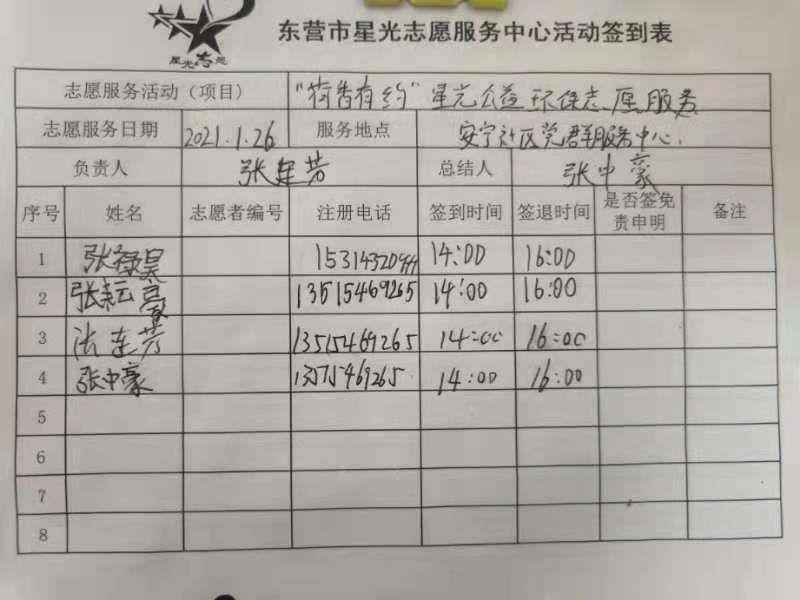 星光志愿
东营市星光志愿服务中心活动签到表
志愿服务活动（项目） "荷香有约"星光公益环保志愿服务
志愿服务日期 2021.1.26 服务地点 安宁社区党群服务中心.
负责人 张建芳 总结人 张中豪
序号 姓名 志愿者编号 注册电话 签到时间 签退时间 是否签免责申明 备注
1 张禄昊 14:00 16:00
2 张耘豪 13515469265 14:00 16:00
3 张建芳 13515469265 14:00 16:00
4 张中豪 13515469265 14:00 16:00
5
6
7
8